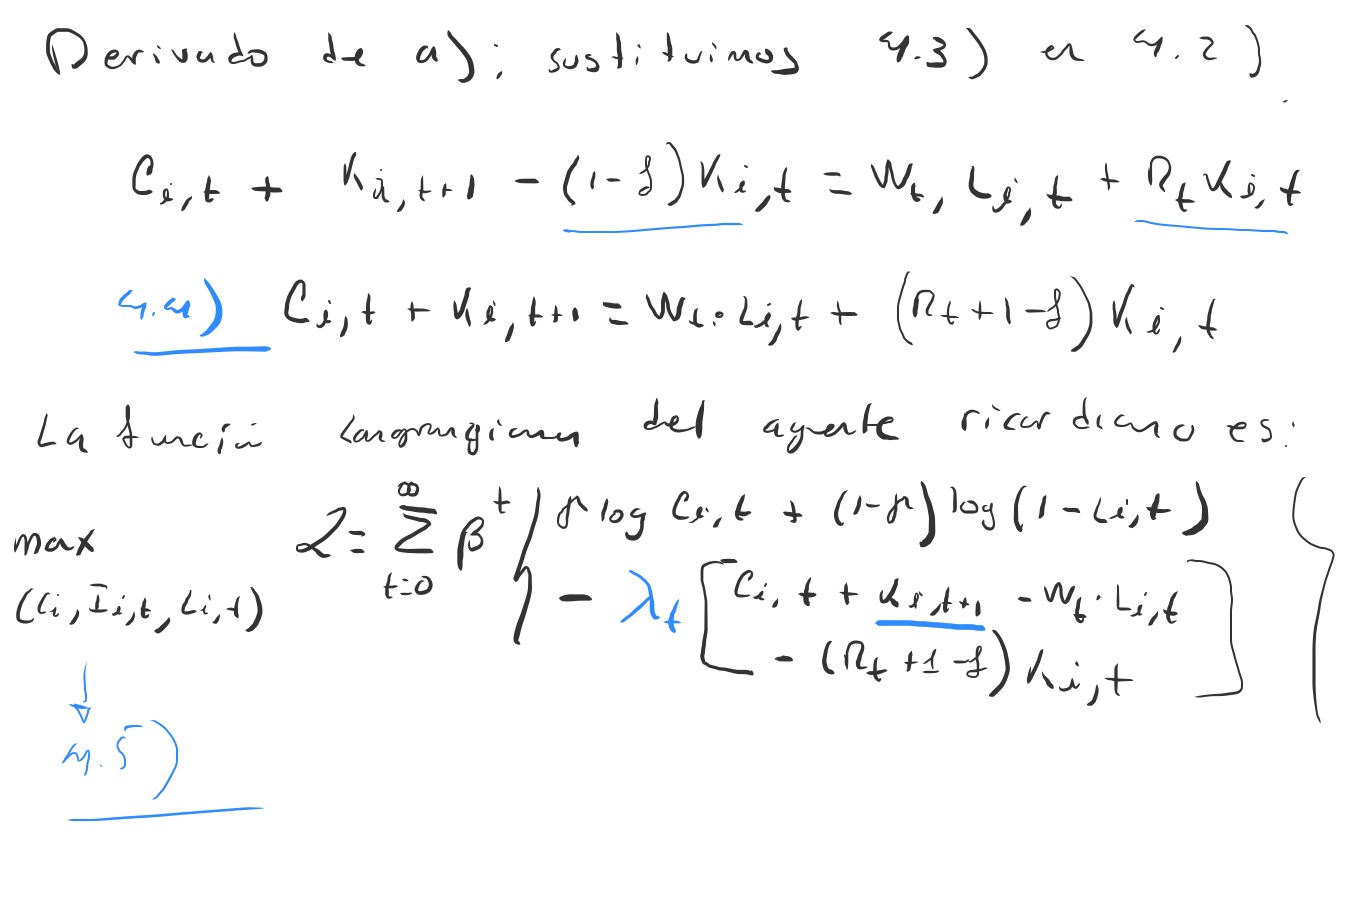 Derivado de a); sustituimos 4.3) en 4.2).
C_{i,t} + K_{i,t+1} - (1-δ)K_{i,t} = W_t, L_{i,t} + R_t K_{i,t}
4.4) C_{i,t} + K_{i,t+1} = W_t · L_{i,t} + (R_t + 1 - δ) K_{i,t}
La función Langrangiana del agente ricardiano es:
max (C_i, I_{i,t}, L_{i,t})
L = ∑_{t=0}^{∞} β^t { γ log C_{i,t} + (1-γ) log (1 - L_{i,t})
- λ_t [ C_{i,t} + K_{i,t+1} - W_t · L_{i,t}
- (R_t + 1 - δ) K_{i,t} ] }
↓
4.5)